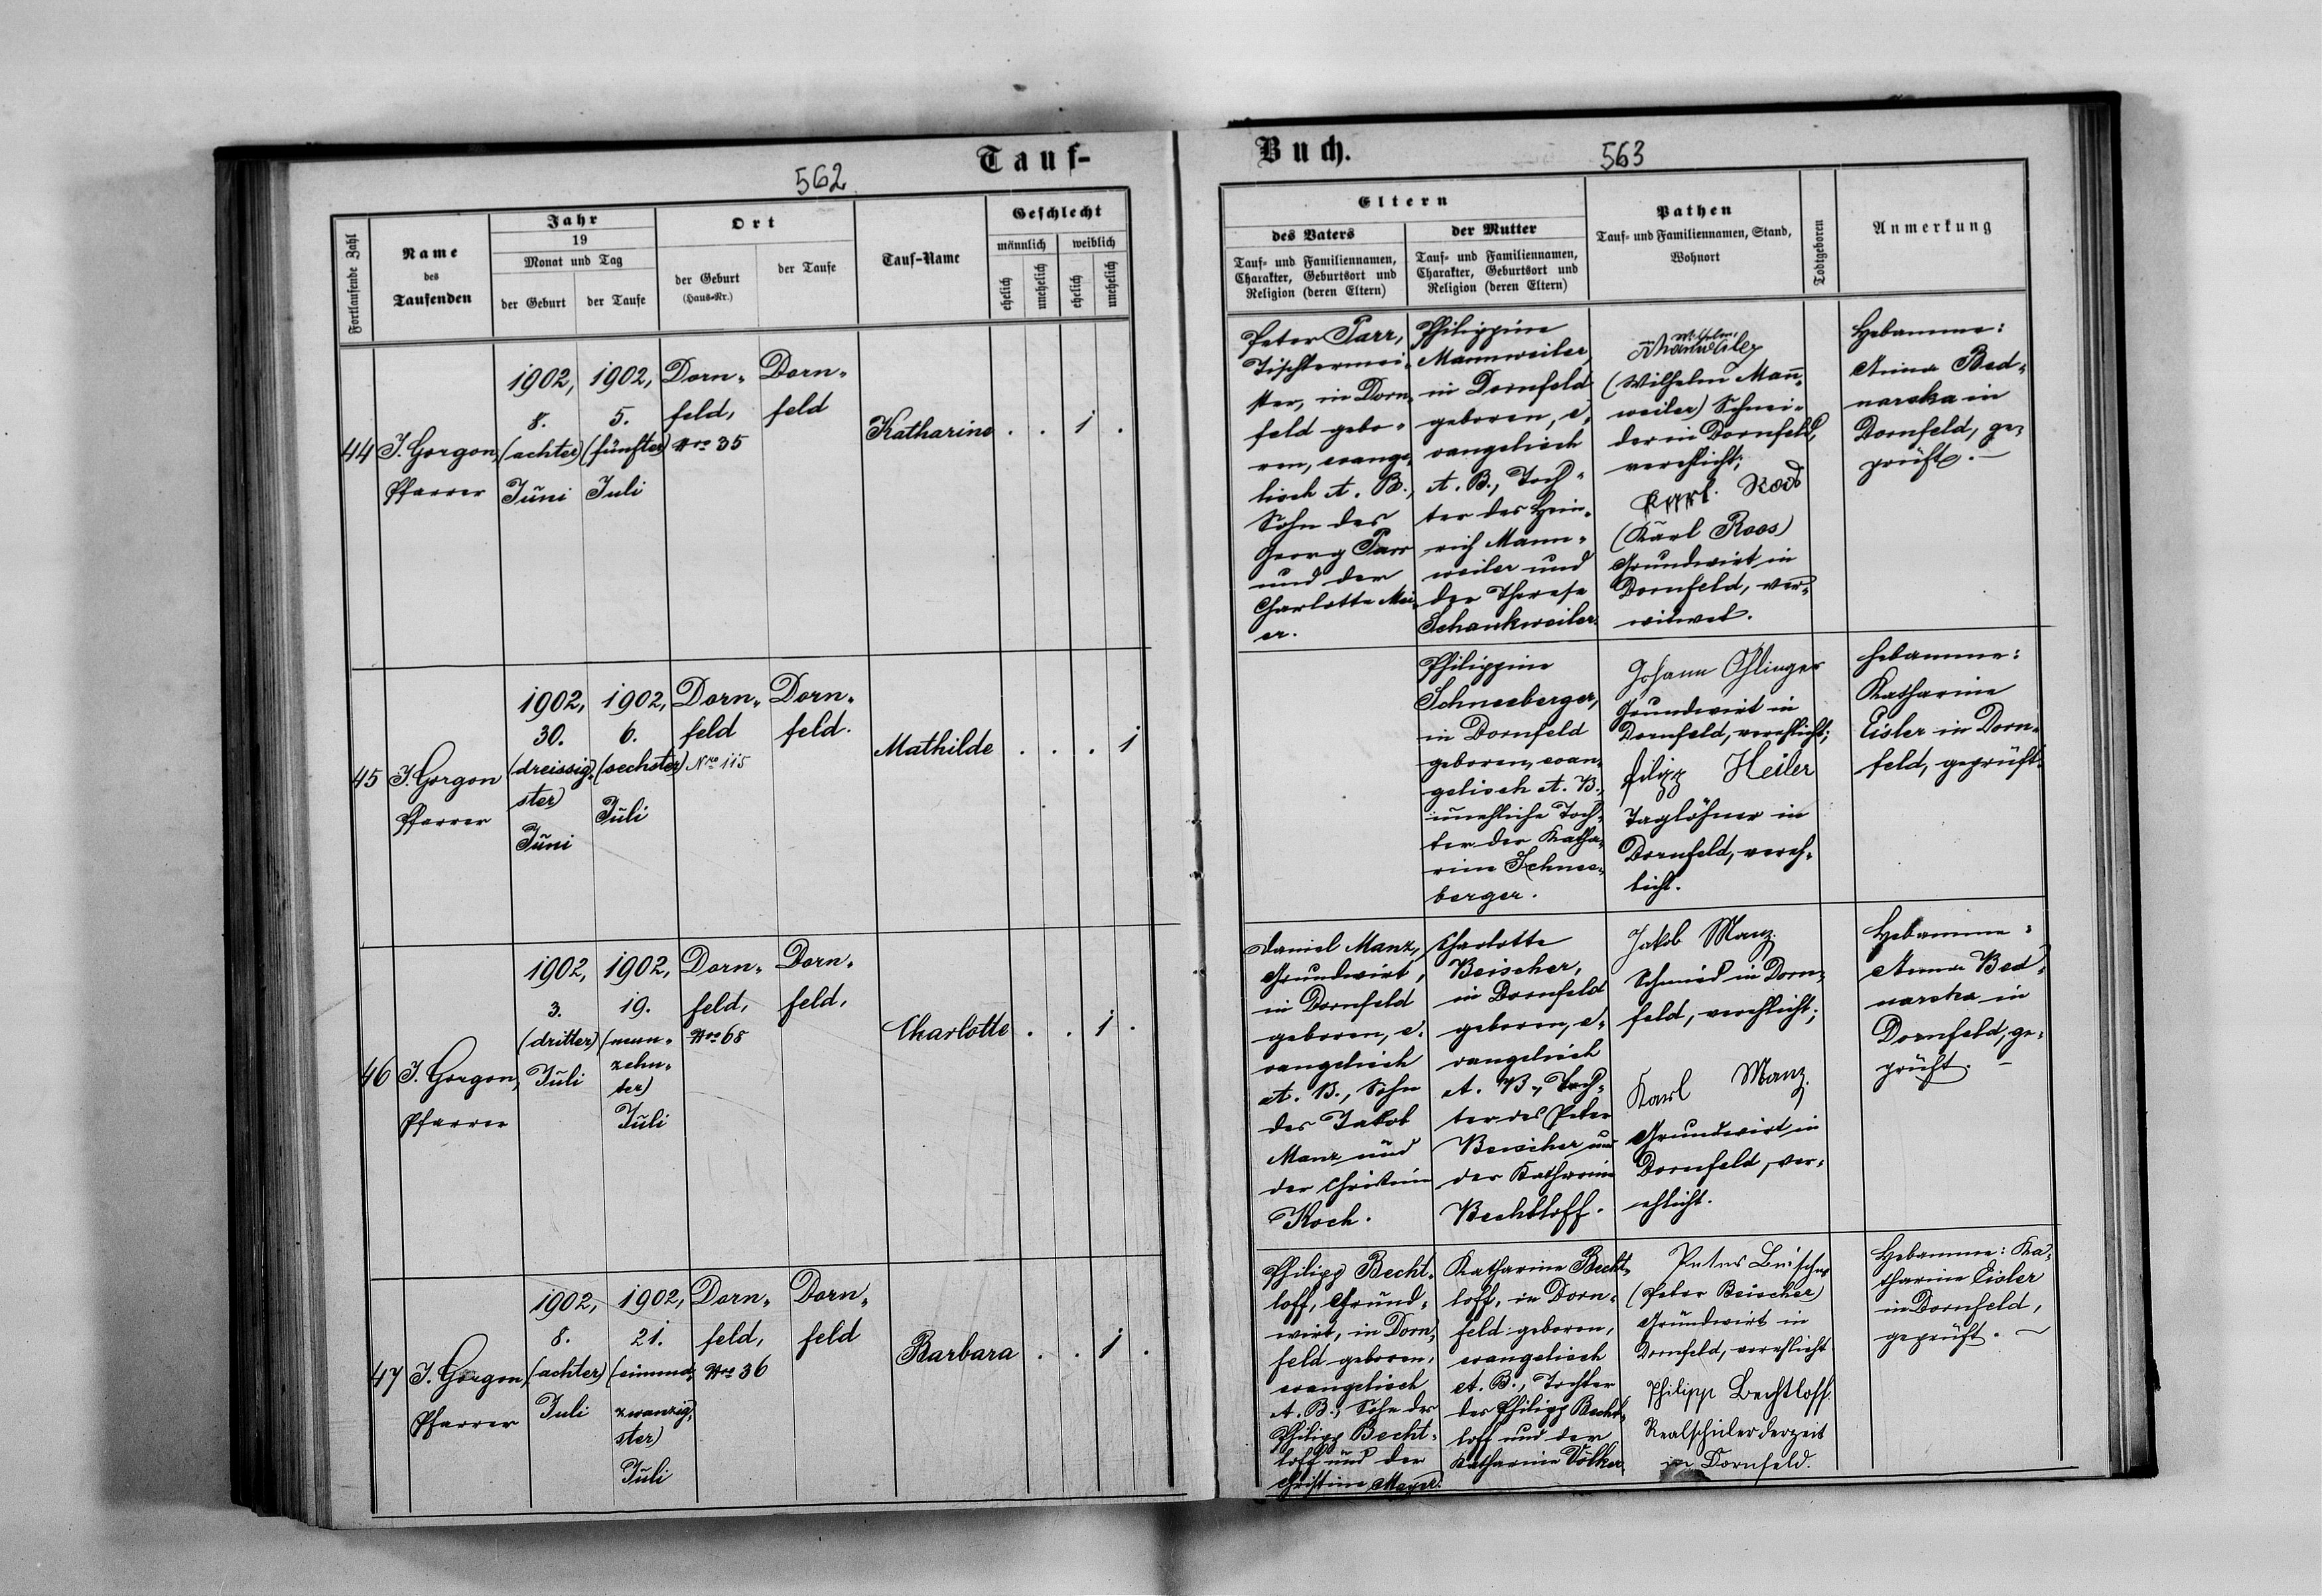 Tauf-
562
Fortlaufende Zahl
Name
des
Taufenden
Jahr
19
Monat und Tag
der Geburt
der Taufe
Ort
der Geburt
(Haus-Nr.)
der Taufe
Tauf-Name
Geschlecht
männlich
weiblich
ehelich
unehelich
ehelich
unehelich
44
J. Gorgon,
Pfarrer
1902,
8.
(achter)
Juni
1902,
5.
(fünfter)
Juli
Dorn-
feld,
Nro 35
Dorn-
feld
Katharine
. . 1 .
45
J. Gorgon
Pfarrer
1902,
30.
(dreissig-
ster)
Juni
1902,
6.
(sechster)
Juli
Dorn-
feld
Nro 115
Dorn-
feld.
Mathilde
. . . 1
46
J. Gorgon,
Pfarrer
1902,
3.
(dritter)
Juli
1902,
19.
(neun-
zehn-
ter)
Juli
Dorn-
feld,
Nro 68
Dorn-
feld,
Charlotte
. . 1 .
47
J. Gorgon,
Pfarrer
1902,
8.
(achter)
Juli
1902,
21.
(einund-
zwanzig-
ster)
Juli
Dorn-
feld,
Nro 36
Dorn-
feld
Barbara
. . 1 .
Buch.
563
Eltern
des Vaters
Tauf- und Familiennamen,
Charakter, Geburtsort und
Religion (deren Eltern)
der Mutter
Tauf- und Familiennamen,
Charakter, Geburtsort und
Religion (deren Eltern)
Pathen
Tauf- und Familiennamen, Stand,
Wohnort
Todtgeboren
Anmerkung
Peter Parr,
Tischlermei-
ster, in Dorn-
feld gebo-
ren, evange-
lisch A. B.,
Sohn des
Georg Parr
und der
Charlotte Mei-
er.
Philippine
Mannweiler,
in Dornfeld
geboren, e-
vangelisch
A. B., Toch-
ter des Hein-
rich Mann-
weiler und
der Therese
Schankweiler.
Wilhelm
Manweiler
(Wilhelm Mann-
weiler) Schnei-
der in Dornfeld,
verehlicht;
Karl Roos
(Karl Roos)
Grundwirt in
Dornfeld, ver-
witwet.
Hebamme:
Anna Bed-
narska in
Dornfeld, ge-
prüft. —
Philippine
Schneeberger,
in Dornfeld
geboren, evan-
gelisch A. B.,
unehliche Toch-
ter der Katha-
rine Schnee-
berger.
Johann Ohlinger
Grundwirt in
Dornfeld, verehlicht;
filipp Heiler
Taglöhner in
Dornfeld, vereh-
licht.
Hebamme:
Katharine
Eisler in Dorn-
feld, geprüft.
Daniel Manz,
Grundwirt,
in Dornfeld
geboren, e-
vangelisch
A. B., Sohn
des Jakob
Manz und
der Christine
Koch.
Charlotte
Beischer,
in Dornfeld
geboren, e-
vangelisch
A. B., Toch-
ter des Peter
Beischer und
der Katharine
Bechtloff.
Jakob Manz.
Schmied in Dorn-
feld, verehlicht;
Karl Manz.
Grundwirt in
Dornfeld, ver-
ehlicht.
Hebamme:
Anna Bed-
narska in
Dornfeld, ge-
prüft. —
Philipp Becht-
loff, Grund-
wirt, in Dorn-
feld geboren,
evangelisch
A. B., Sohn des
Philipp Becht-
loff und der
Christine Mayer.
Katharine Becht-
loff, in Dorn-
feld geboren,
evangelisch
A. B., Tochter
des Philipp Becht-
loff und der
Katharine Völker.
Peter Beischer
(Peter Beischer)
Grundwirt in
Dornfeld, verehlicht
Philipp Bechtloff.
Realschüler derzeit
in Dornfeld.
Hebamme: Ka-
tharine Eisler
in Dornfeld,
geprüft. —